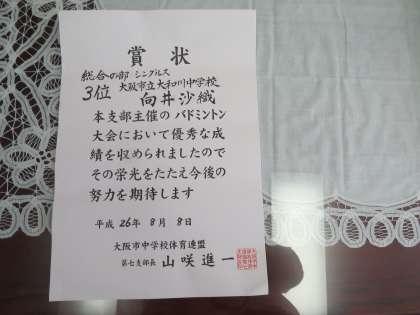 賞状
総合の部 シングルス
大阪市立大和川中学校
3位 向井沙織
本支部主催のバドミントン
大会において優秀な成
績を収められましたので
その栄光をたたえ今後の
努力を期待します
平成 26年 8月 8日
大阪市中学校体育連盟
第七支部長 山咲進一